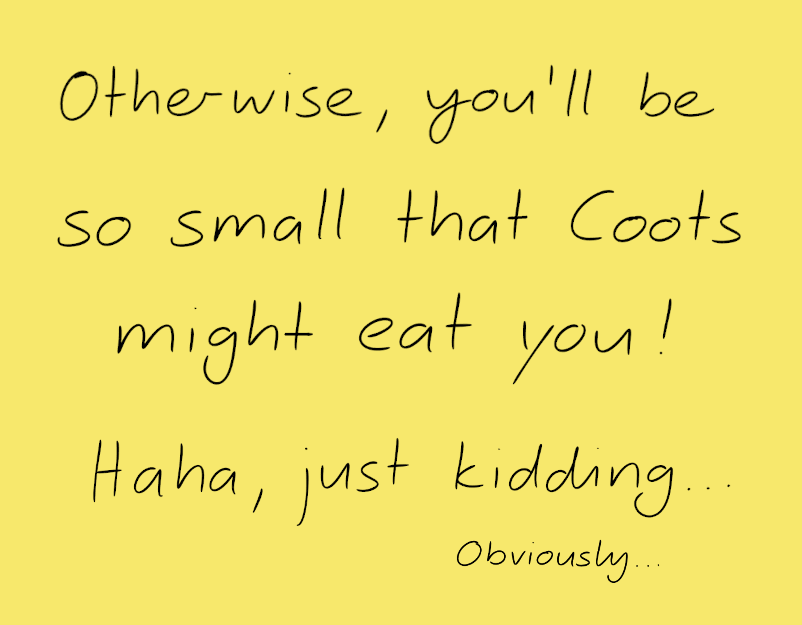 Otherwise, you'll be
so small that Coots
might eat you!
Haha, just kidding...
Obviously...